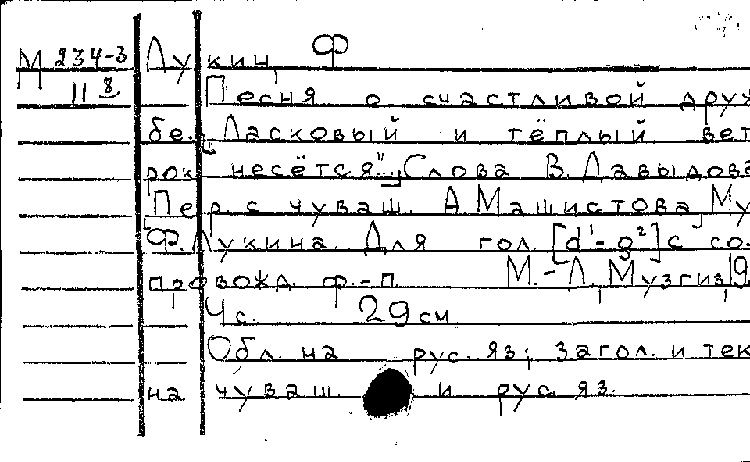 М 234-3 Лукин, Ф
11 8 Песня о счастливой друж
бе. „Ласковый и тёплый вет
рок несётся". Слова В. Давыдова
[Пер. с чуваш. А. Машистова] Му
Ф. Лукина. Для гол. [d¹-g²] с со-
провожд. ф.-п. М.-Л., Музгиз, 19
4 с. 29 см
Обл. на рус. яз; загол. и тек
на чуваш. и рус. яз.